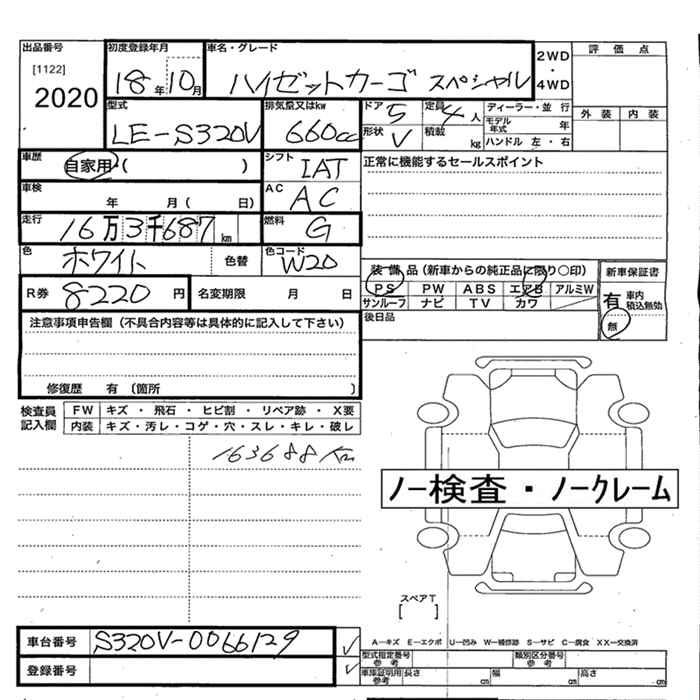 出品番号
[1122]
2020
初度登録年月
18年10月
車名・グレード
ハイゼットカーゴ スペシャル
2WD
・
4WD
評価点
外装 内装
型式
LE-S320V
排気量又はkw
660cc
ドア 5
形状 V
定員 4人
積載 kg
ディーラー・並行
モデル年式 年
ハンドル 左・右
車歴
自家用・( )
シフト
IAT
正常に機能するセールスポイント
車検
年 月( 日)
AC
AC
走行
16万3千687km
燃料
G
色
ホワイト
色替
色コード
W20
R券 8220円
名変期限 月 日
装備品(新車からの純正品に限り○印)
PS PW ABS エアB アルミW
サンルーフ ナビ TV カワ
後日品
新車保証書
有 車内積込無効
無
注意事項申告欄(不具合内容等は具体的に記入して下さい)
修復歴 有(箇所 )
検査員記入欄
FW キズ・飛石・ヒビ割・リペア跡・X要
内装 キズ・汚レ・コゲ・穴・スレ・キレ・破レ
163688Km
ノー検査・ノークレーム
スペアT
[ ]
車台番号 S320V-0066129
登録番号
A−キズ E−エクボ U−凹み W−補修跡 S−サビ C−腐食 XX−交換済
型式指定番号 参考
類別区分番号 参考
車庫証明用 参考 長さ cm 幅 cm 高さ cm